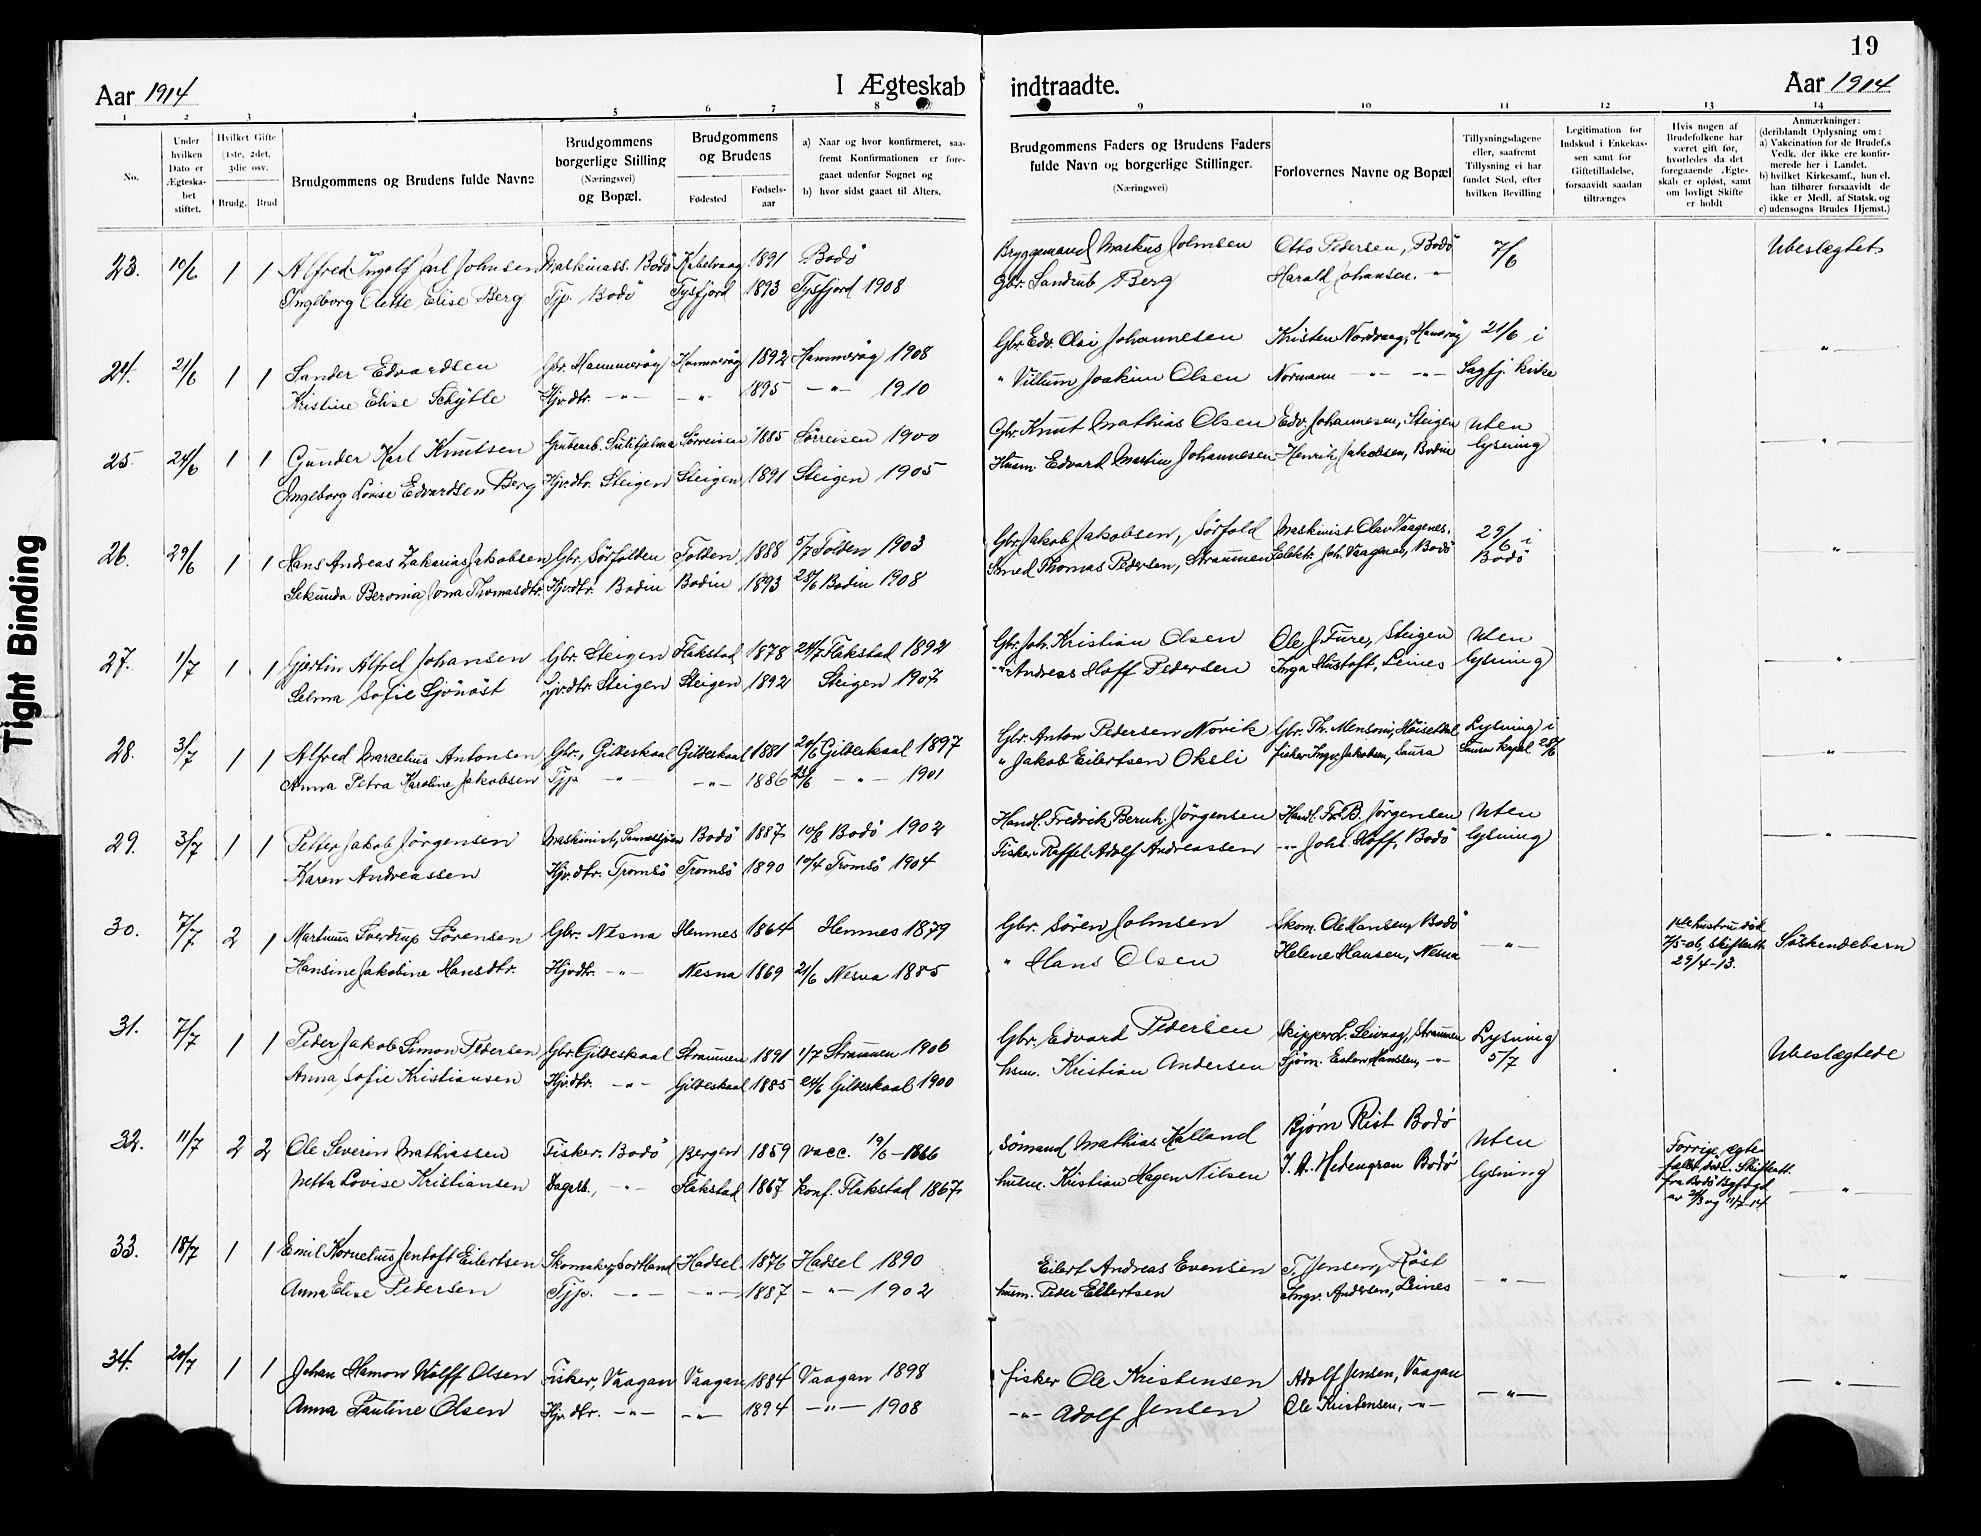 19
Aar 1914 I Ægteskab indtraadte. Aar 1914
1 2 3 4 5 6 7 8 9 10 11 12 13 14
No.
Under hvilken Dato er Ægteskabet stiftet.
Hvilket Gifte (1ste, 2det, 3die osv.
Brudg. Brud
Brudgommens og Brudens fulde Navne
Brudgommens borgerlige Stilling (Næringsvei) og Bopæl.
Brudgommens og Brudens
Fødested Fødselsaar
a) Naar og hvor konfirmeret, saafremt Konfirmationen er foregaaet udenfor Sognet og
b) hvor sidst gaaet til Alters.
Brudgommens Faders og Brudens Faders fulde Navn og borgerlige Stillinger. (Næringsvei)
Forlovernes Navne og Bopæl
Tillysningsdagene eller, saafremt Tillysning ei har fundet Sted, efter hvilken Bevilling
Legitimation for Indskud i Enkekassen samt for Giftetilladelse, forsaavidt saadan tiltrænges
Hvis nogen af Brudefolkene har været gift før, hvorledes da det foregaaende Ægteskab er opløst, samt om lovligt Skifte er holdt
Anmærkninger: (deriblandt Oplysning om: a) Vakcination for de Brudef.s Vedk. der ikke ere konfirmerede her i Landet. b) hvilket Kirkesamf., hun el. han tilhører forsaavidt de ikke er Medl. af Statsk. og c) udensogns Brudes Hjemst.)
23. 10/6 1 1 Alfred Ingolf Jarl Johnsen Maskinass. Bodö Kabelvaag 1891 Bodö Bryggemand Markus Johnsen Otto Pedersen, Bodö 7/6 Ubeslægtet
Ingeborg Olette Elise Berg Tjp. Bodö Tysfjord 1893 Tysfjord 1908 Gbr. Sandrub Berg Harald Johansen. -"-
24. 21/6 1 1 Sander Edvardsen Gbr. Hammeröy Hammeröy 1892 Hammeröy 1908 Gbr. Edv. Olai Johannesen Kristen Nordvaag, Hamröy 21/6 i -"-
Kristine Elise Schytte Hjv.dtr. -"- -"- 1895 -"- 1910 " Villum Joakim Olsen Normann -"- -"- Sagfj. kirke
25. 24/6 1 1 Gunder Karl Knutsen Grubearb. Sulitjelma Sörreisen 1885 Sörreisen 1900 Gbr. Knut Mathias Olsen Edv. Johannesen, Steigen Uten -"-
Ingeborg Lovise Edvardsen Berg Hjv.dtr. Steigen Steigen 1891 Steigen 1905 Husm. Edvard Martin Johannesen Henrik Jakobsen, Bodin lysning
26. 29/6 1 1 Hans Andreas Zakarias Jakobsen Gbr. Sörfolden Folden 1888 5/7 Folden 1903 Gbr. Jakob Jakobsen, Sörfold Maskinist Olav Vaagenes. 29/6 i -"-
Sekunda Beronia Jona Thomasdtr. Hjv.dtr. Bodin Bodin 1893 28/6 Bodin 1908 Smed Thomas Pedersen, Straumen Elektr. Joh. Vaagenes, Bodö Bodö
27. 1/7 1 1 Gjertin Alfred Johansen Gbr. Steigen Flakstad 1878 24/7 Flakstad 1892 Gbr. Joh. Kristian Olsen Ole J. Fure, Steigen Uten -"-
Selma Sofie Sjönöst Hjv.dtr. Steigen Steigen 1892 Steigen 1907 -"- Andreas Hoff Pedersen Inga Hustoft, Leines lysning
28. 3/7 1 1 Alfred Marcelius Antonsen Gbr., Gildeskaal Gildeskaal 1881 20/6 Gildeskaal 1897 Gbr. Anton Pedersen Novik Gbr. Th. Menson, Höisetdal Lysning i -"-
Anna Petra Karoline Jakobsen Tjp. -"- -"- 1886 23/6 -"- 1901 " Jakob Eilertsen Oksli fisker Ingv. Jakobsen, Saura Saura kapel 28/6
29. 3/7 1 1 Petter Jakob Jörgensen Maskinist, Sannessjöen Bodö 1887 10/8 Bodö 1902 Handl. Fredrik Bernh. Jörgensen Handl. Fr. B. Jörgensen Uten -"-
Karen Andreassen Hjv.dtr. Tromsö Tromsö 1890 10/4 Tromsö 1904 Fisker Raffel Adolf Andreassen -"- Johs. Hoff, Bodö lysning
30. 7/7 2 1 Martinus Sverdrup Sörensen Gbr. Nesna Hemnes 1864 Hemnes 1879 Gbr. Sören Johnsen Skom. Ole Hansen, Bodö -"- 1ste hustru död 7/5-06, skifteatt. 29/4-13. Söskendebarn
Hansine Jakobine Hansdtr. Hjvdtr. -"- Nesna 1869 21/6 Nesna 1885 " Hans Olsen Helene Hansen, Nesna
31. 7/7 1 1 Peder Jakob Simon Pedersen Gbr. Gildeskaal Straumen 1891 1/7 Straumen 1906 Gbr. Edvard Pedersen Skipper L. Seivaag, Straumen Lysning 5/7 Ubeslægtede
Anna Sofie Kristiansen Hjv.dtr. -"- Gildeskaal 1885 24/6 Gildeskaal 1900 husm. Kristian Andersen Sjöm. Hanssen, -"-
32. 11/7 2 2 Ole Severin Mathiassen Fisker. Bodö Bergen 1859 vacc. 19/6-1866 Sömand Mathias Kalland Bjørn Rist Bodö Uten Forrige ægtefaller döde. Skifteatt. fra Bodö Byfogd av 20/3 og 11/7-14 -"-
Netta Lovise Kristiansen Dagarb., -"- Flakstad 1867 konf. Flakstad 1867 husm. Kristian Hagen Nilsen J. A. Hedengran Bodö lysning
33. 18/7 1 1 Emil Kornelius Jentoft Eilertsen Skomaker, Sortland Hadsel 1876 Hadsel 1890 Eilert Andreas Evensen T. Jensen, Röst -"- -"-
Anna Elise Pedersen Tjp. -"- -"- 1887 -"- 1902 husm. Peder Eilertsen Ingv. Andersen, Leines
34. 20/7 1 1 Johan Hamon Wolff Olsen Fisker, Vaagan Vaagan 1884 Vaagan 1898 fisker Ole Kristensen Adolf Jensen, Vaagan -"- -"-
Anna Pauline Olsen Hjv.dtr. -"- -"- 1894 -"- 1908 -"- Adolf Jensen Ole Kristensen, -"-
Tight Binding